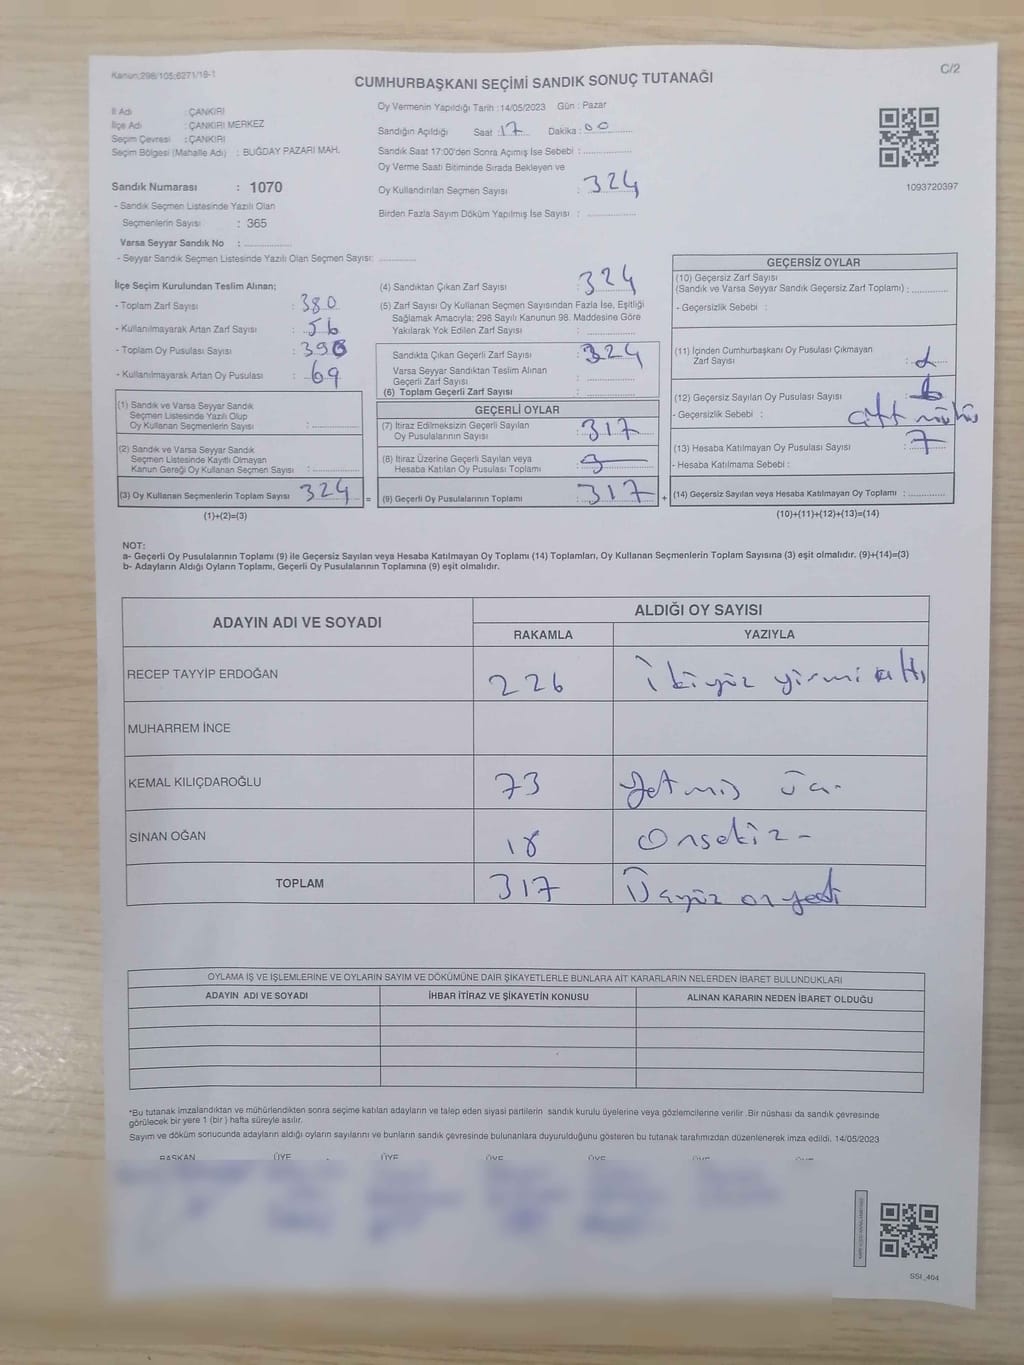 Kanun:298/105;6271/18-1
C/2
CUMHURBAŞKANI SEÇİMİ SANDIK SONUÇ TUTANAĞI
İl Adı : ÇANKIRI
İlçe Adı : ÇANKIRI MERKEZ
Seçim Çevresi : ÇANKIRI
Seçim Bölgesi (Mahalle Adı) : BUĞDAY PAZARI MAH.
Sandık Numarası : 1070
- Sandık Seçmen Listesinde Yazılı Olan
Seçmenlerin Sayısı : 365
Varsa Seyyar Sandık No :
- Seyyar Sandık Seçmen Listesinde Yazılı Olan Seçmen Sayısı:
Oy Vermenin Yapıldığı Tarih : 14/05/2023 Gün : Pazar
Sandığın Açıldığı Saat : 17 Dakika : 00
Sandık Saat 17:00'den Sonra Açımış İse Sebebi :
Oy Verme Saati Bitiminde Sırada Bekleyen ve
Oy Kullandırılan Seçmen Sayısı : 324
Birden Fazla Sayım Döküm Yapılmış İse Sayısı :
1093720397
İlçe Seçim Kurulundan Teslim Alınan;
- Toplam Zarf Sayısı : 380
- Kullanılmayarak Artan Zarf Sayısı : 56
- Toplam Oy Pusulası Sayısı : 393
- Kullanılmayarak Artan Oy Pusulası : 69
(1) Sandık ve Varsa Seyyar Sandık
Seçmen Listesinde Yazılı Olup
Oy Kullanan Seçmenlerin Sayısı :
(2) Sandık ve Varsa Seyyar Sandık
Seçmen Listesinde Kayıtlı Olmayan
Kanun Gereği Oy Kullanan Seçmen Sayısı :
(3) Oy Kullanan Seçmenlerin Toplam Sayısı 324 =
(1)+(2)=(3)
(4) Sandıktan Çıkan Zarf Sayısı : 324
(5) Zarf Sayısı Oy Kullanan Seçmen Sayısından Fazla İse, Eşitliği
Sağlamak Amacıyla; 298 Sayılı Kanunun 98. Maddesine Göre
Yakılarak Yok Edilen Zarf Sayısı :
Sandıkta Çıkan Geçerli Zarf Sayısı : 324
Varsa Seyyar Sandıktan Teslim Alınan
Geçerli Zarf Sayısı :
(6) Toplam Geçerli Zarf Sayısı :
GEÇERLİ OYLAR
(7) İtiraz Edilmeksizin Geçerli Sayılan
Oy Pusulalarının Sayısı : 317
(8) İtiraz Üzerine Geçerli Sayılan veya
Hesaba Katılan Oy Pusulası Toplamı :
(9) Geçerli Oy Pusulalarının Toplamı : 317 +
GEÇERSİZ OYLAR
(10) Geçersiz Zarf Sayısı
(Sandık ve Varsa Seyyar Sandık Geçersiz Zarf Toplamı) :
- Geçersizlik Sebebi :
(11) İçinden Cumhurbaşkanı Oy Pusulası Çıkmayan
Zarf Sayısı :
(12) Geçersiz Sayılan Oy Pusulası Sayısı :
- Geçersizlik Sebebi : çift mühür
(13) Hesaba Katılmayan Oy Pusulası Sayısı : 7
- Hesaba Katılmama Sebebi :
(14) Geçersiz Sayılan veya Hesaba Katılmayan Oy Toplamı :
(10)+(11)+(12)+(13)=(14)
NOT:
a- Geçerli Oy Pusulalarının Toplamı (9) ile Geçersiz Sayılan veya Hesaba Katılmayan Oy Toplamı (14) Toplamları, Oy Kullanan Seçmenlerin Toplam Sayısına (3) eşit olmalıdır. (9)+(14)=(3)
b- Adayların Aldığı Oyların Toplamı, Geçerli Oy Pusulalarının Toplamına (9) eşit olmalıdır.
ADAYIN ADI VE SOYADI
ALDIĞI OY SAYISI
RAKAMLA YAZIYLA
RECEP TAYYİP ERDOĞAN 226 İkiyüz yirmi altı
MUHARREM İNCE
KEMAL KILIÇDAROĞLU 73 Yetmiş üç
SİNAN OĞAN 18 Onsekiz -
TOPLAM 317 Üçyüz on yedi
OYLAMA İŞ VE İŞLEMLERİNE VE OYLARIN SAYIM VE DÖKÜMÜNE DAİR ŞİKAYETLERLE BUNLARA AİT KARARLARIN NELERDEN İBARET BULUNDUKLARI
ADAYIN ADI VE SOYADI İHBAR İTİRAZ VE ŞİKAYETİN KONUSU ALINAN KARARIN NEDEN İBARET OLDUĞU
*Bu tutanak imzalandıktan ve mühürlendikten sonra seçime katılan adayların ve talep eden siyasi partilerin sandık kurulu üyelerine veya gözlemcilerine verilir .Bir nüshası da sandık çevresinde
görülecek bir yere 1 (bir ) hafta süreyle asılır.
Sayım ve döküm sonucunda adayların aldığı oyların sayılarını ve bunların sandık çevresinde bulunanlara duyurulduğunu gösteren bu tutanak tarafımızdan düzenlenerek imza edildi. 14/05/2023
BAŞKAN ÜYE ÜYE ÜYE ÜYE ÜYE
SSI_404